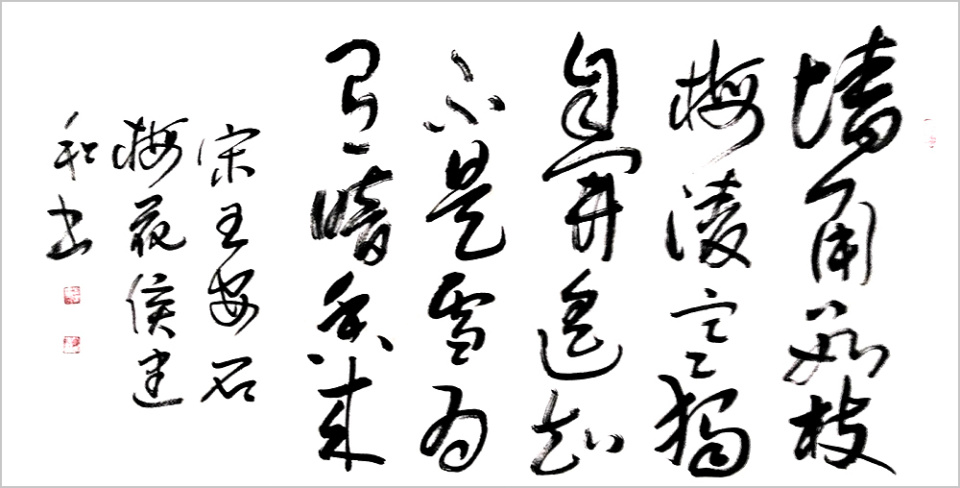 墙角数枝
梅凌寒独
自开遥知
不是雪为
有暗香来
宋王安石
梅花侯建
和书